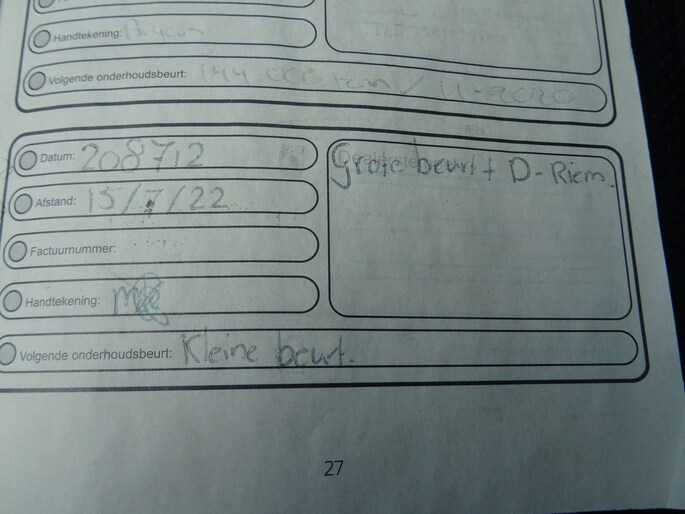 Handtekening:
Volgende onderhoudsbeurt: 144.000 km / 11-2020
Datum: 208712
Grote beurt + D-Riem.
Afstand: 15/7/22
Factuurnummer:
Handtekening:
Volgende onderhoudsbeurt: Kleine beurt.
27